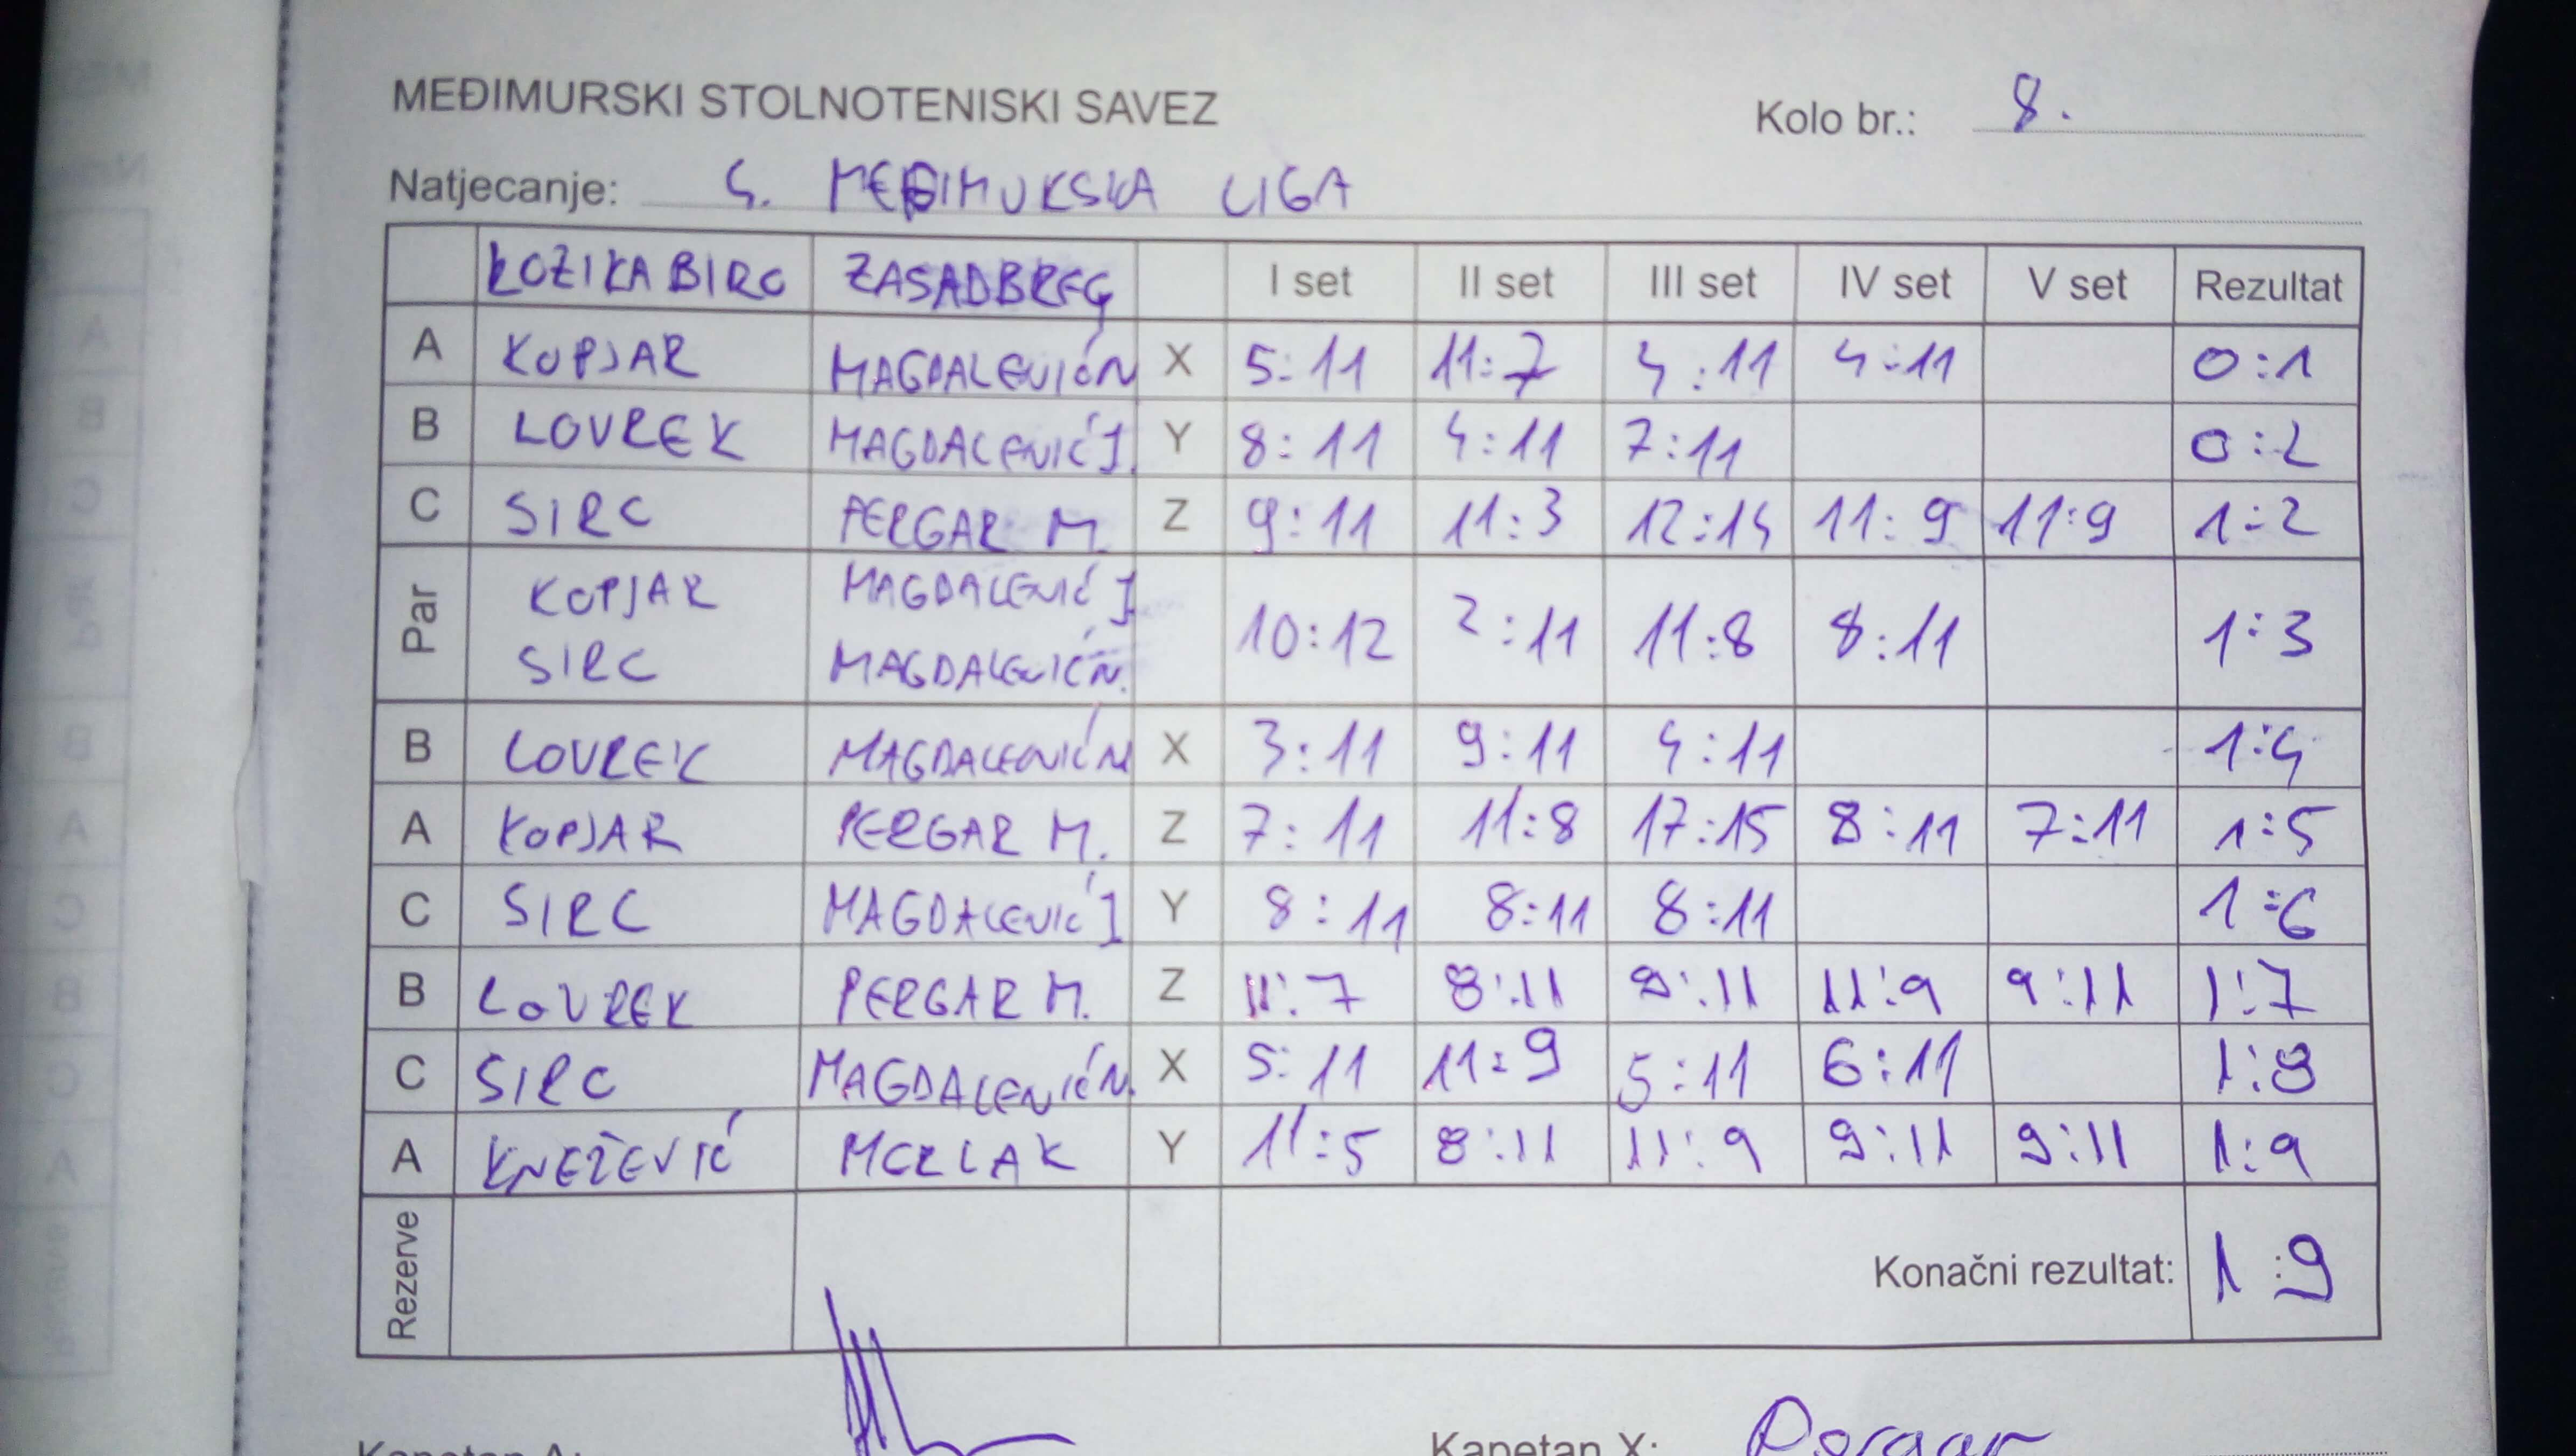 MEĐIMURSKI STOLNOTENISKI SAVEZ
Kolo br.: 8.
Natjecanje: 4. MEĐIMURSKA LIGA
ZASADBREG I set II set III set IV set V set Rezultat
A KOPJAR MAGDALENIĆ N X 5:11 11:7 4:11 4:11 0:1
B LOVREK MAGDALENIĆ I. Y 8:11 4:11 7:11 0:2
C SIRC PERGAR M. Z 9:11 11:3 12:14 11:9 11:9 1:2
Par KOPJAR MAGDALENIĆ I 10:12 2:11 11:8 8:11 1:3
SIRC MAGDALENIĆ N.
B LOVREK MAGDALENIĆ N X 3:11 9:11 4:11 1:4
A KOPJAR PERGAR M. Z 7:11 11:8 17:15 8:11 7:11 1:5
C SIRC MAGDALENIĆ I Y 8:11 8:11 8:11 1:6
B LOVREK PERGAR M. Z 11:7 8:11 9:11 11:9 9:11 1:7
C SIRC MAGDALENIĆ N. X 5:11 11:9 5:11 6:11 1:8
A KNEŽEVIĆ MERLAK Y 11:5 8:11 11:9 9:11 9:11 1:9
Rezerve Konačni rezultat: 1:9
Kapetan A: Kapetan X: Pergar